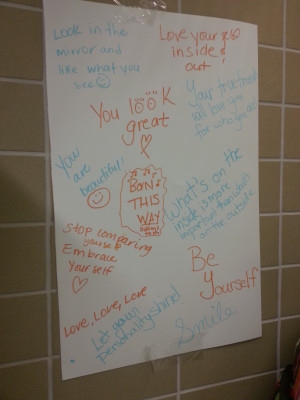 Look in the
mirror and
like what you
see
Love your self
inside &
out!
You look
great
Your true friends
will love you
for who you are!
You
are
beautiful!
BORN
THIS
WAY
What's on the
inside is more
important than what's
on the outside
Stop comparing
yourself
Embrace
Yourself
Be
Yourself
Love, Love, Love
Let your
personality shine!
Smile